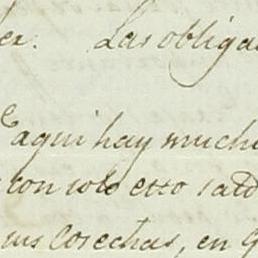 er. Las obliga
aqui hay mucho
con solo esto sald
sus Cosechas, en